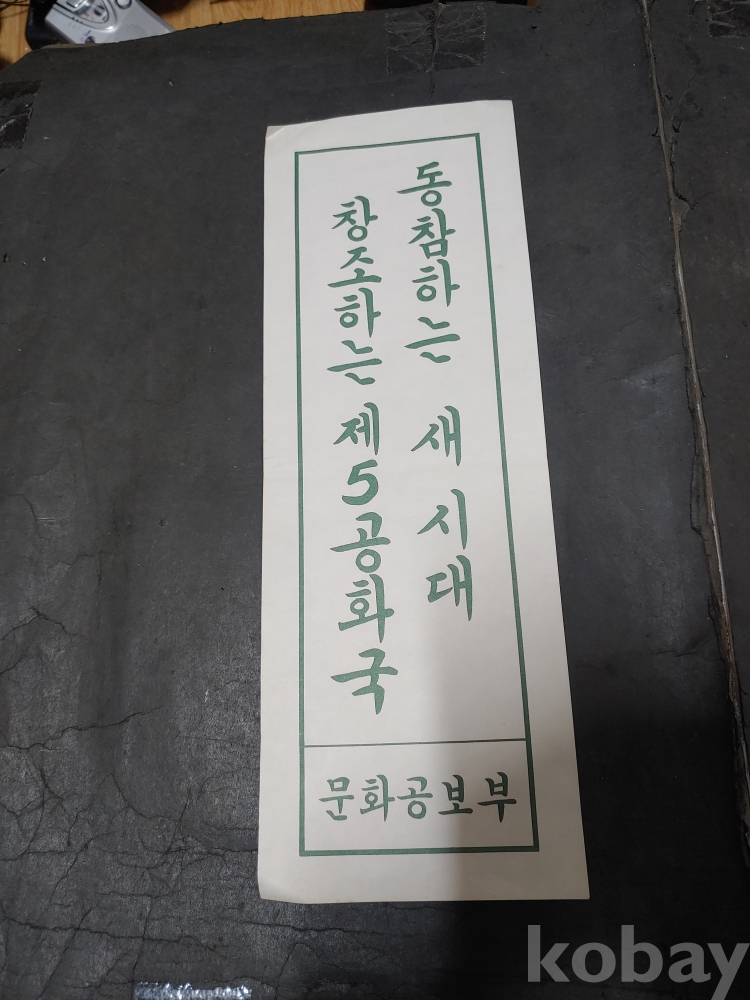 동참하는 새 시대
창조하는 제5공화국
문화공보부
kobay